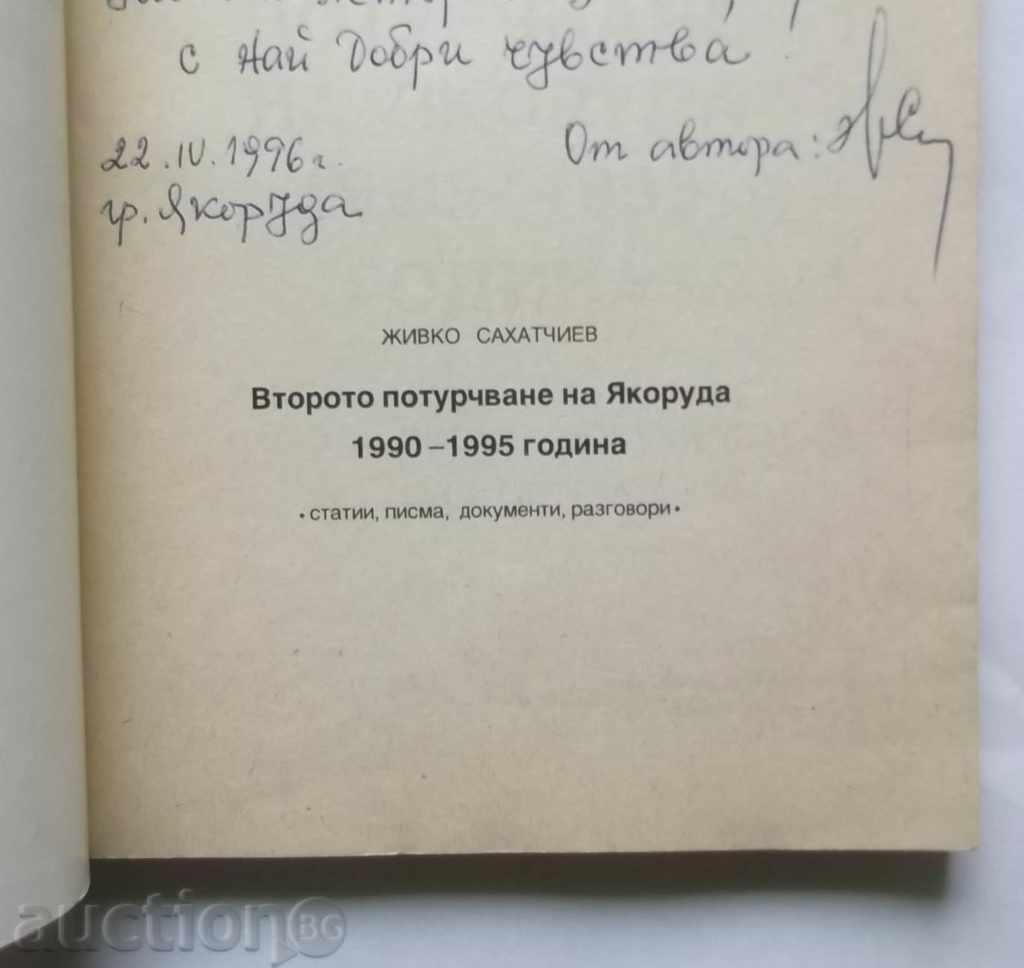 с Най Добри чувства!
22.IV.1996г.
От автора:
гр. Якоруда
ЖИВКО САХАТЧИЕВ
Второто потурчване на Якоруда
1990 –1995 година
• статии, писма, документи, разговори •
auctionBG